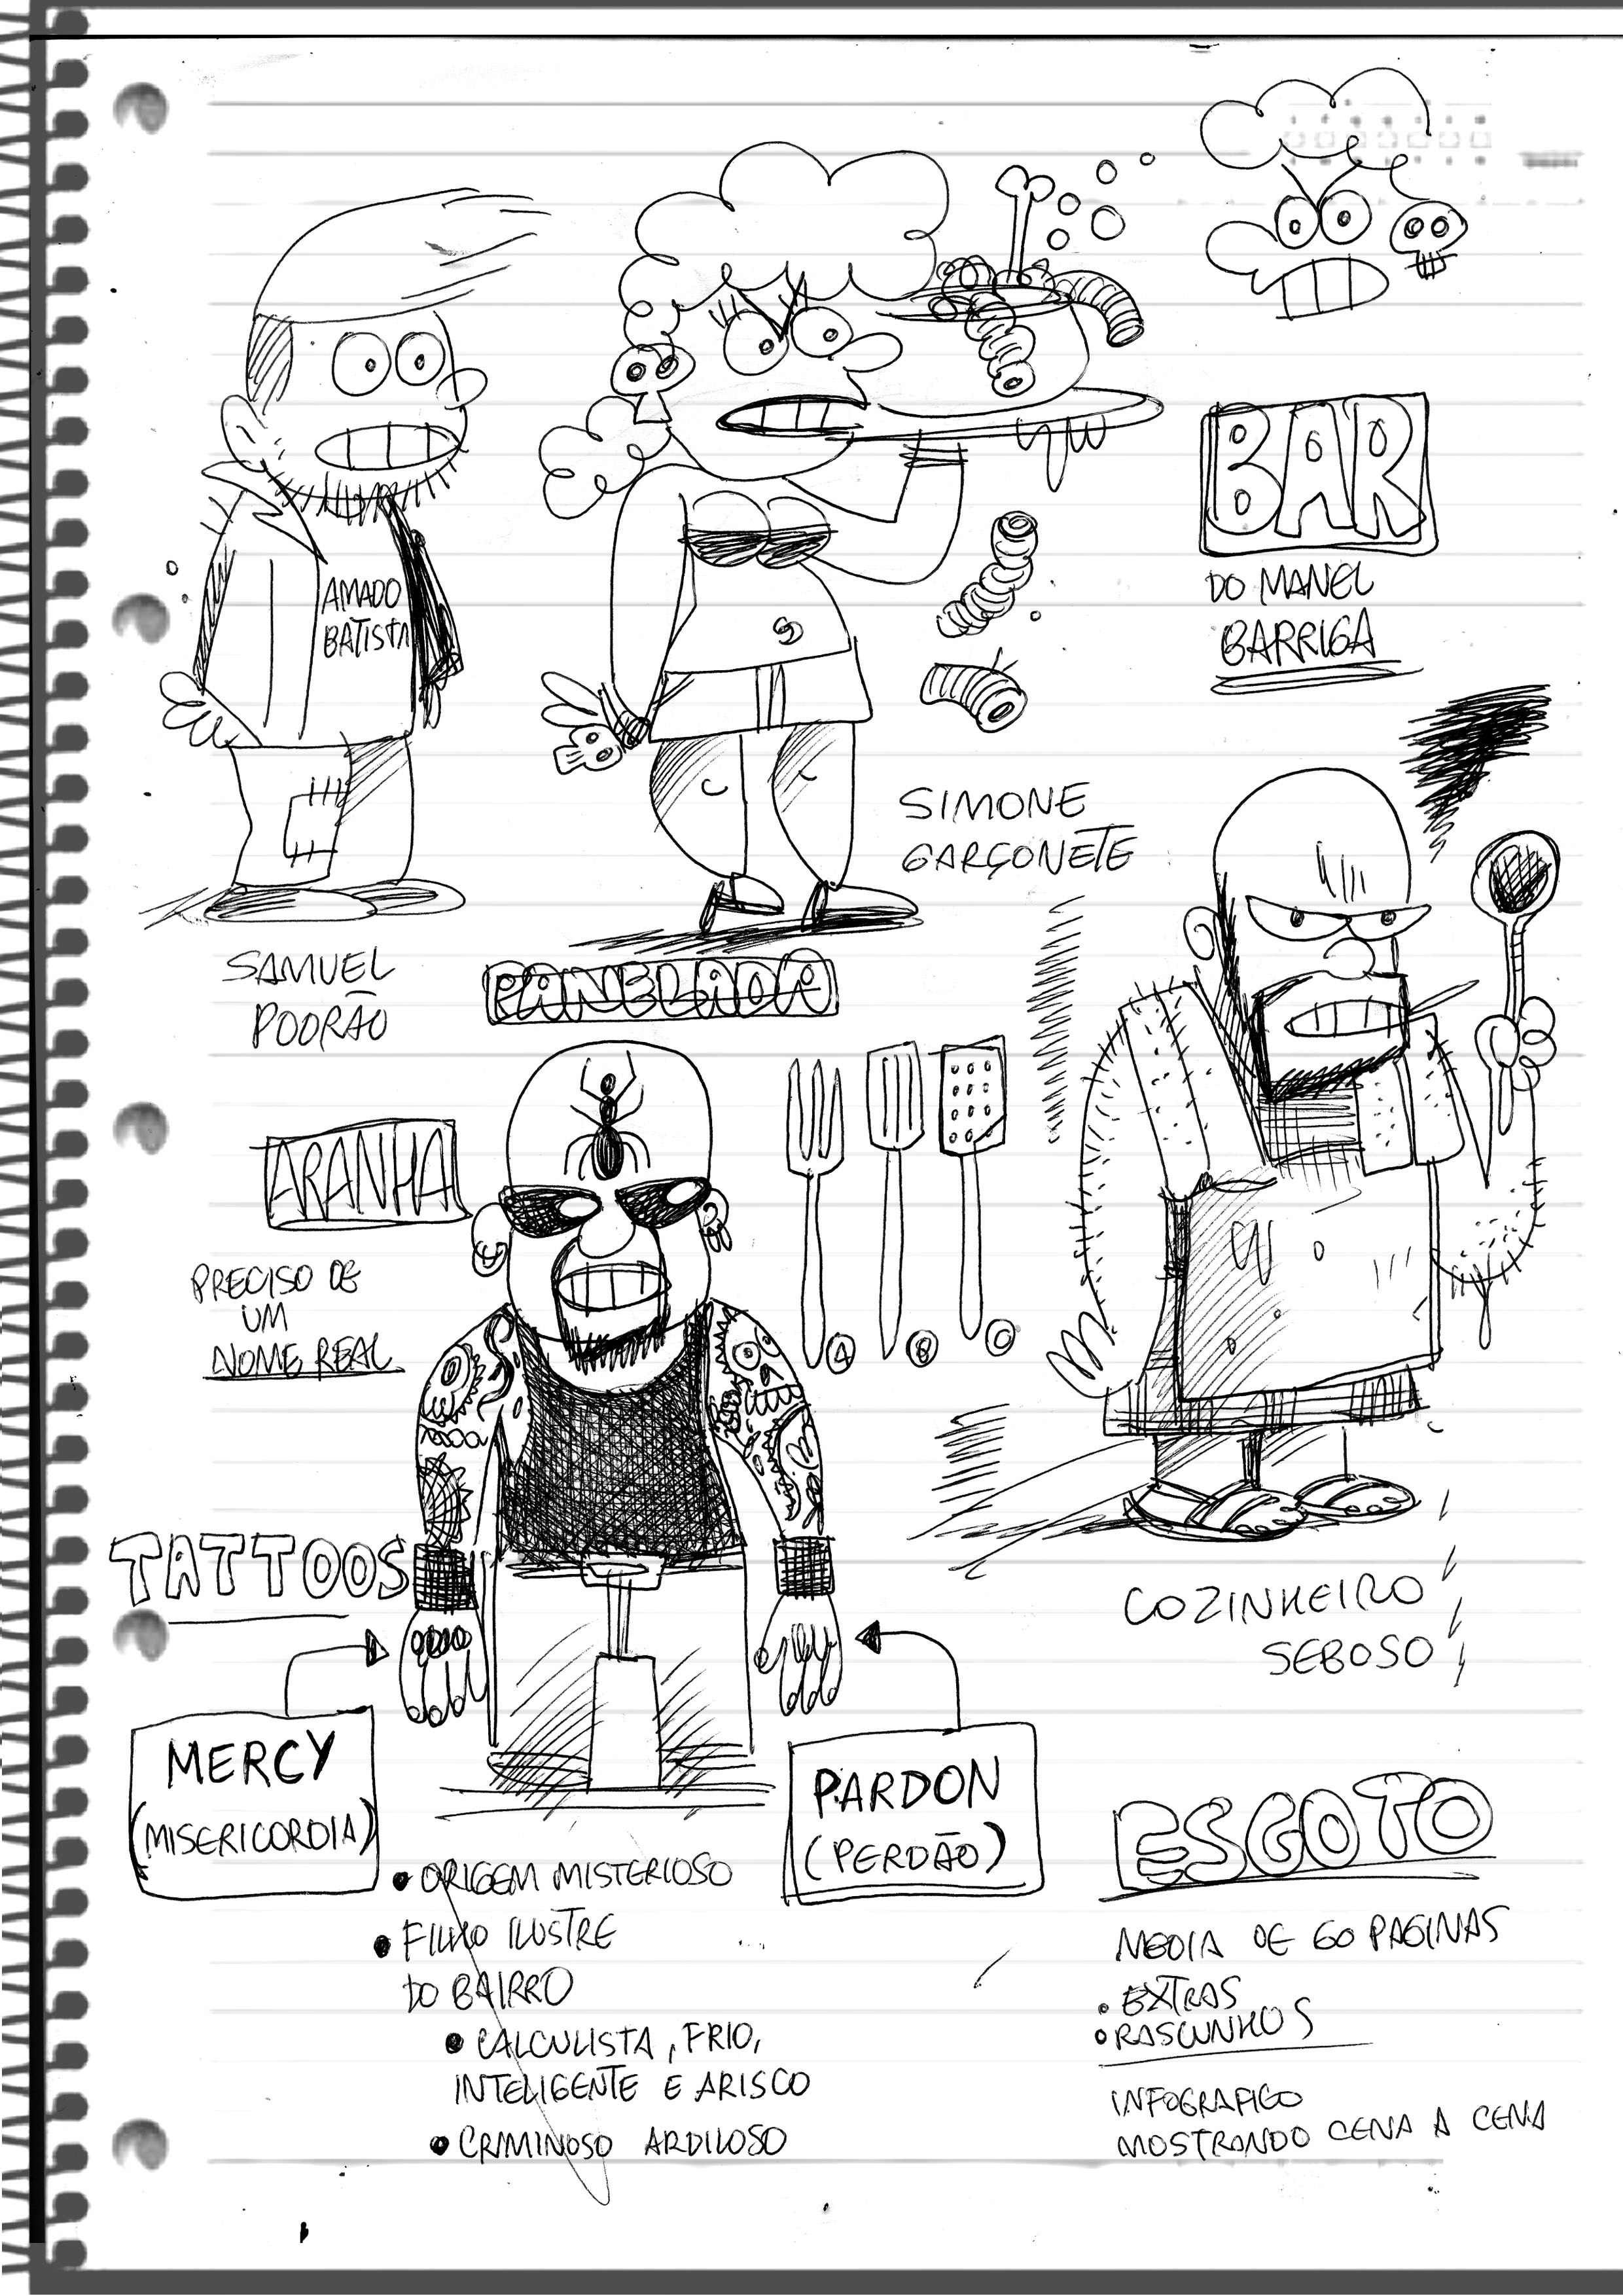 AMADO
BATISTA
BAR
DO MANEL
BARRIGA
SIMONE
GARÇONETE
SAMUEL
PODRÃO
PANELADA
ARANHA
PRECISO DE
UM
NOME REAL
A
B
C
TATTOOS
COZINHEIRO
SEBOSO
MERCY
(MISERICORDIA)
PARDON
(PERDÃO)
• ORIGEM MISTERIOSO
• FILHO ILUSTRE
DO BAIRRO
• CALCULISTA, FRIO,
INTELIGENTE E ARISCO
• CRMINOSO ARDILOSO
ESGOTO
MEDIA DE 60 PAGINAS
• EXTRAS
• RASCUNHOS
INFOGRAFICO
MOSTRANDO CENA A CENA